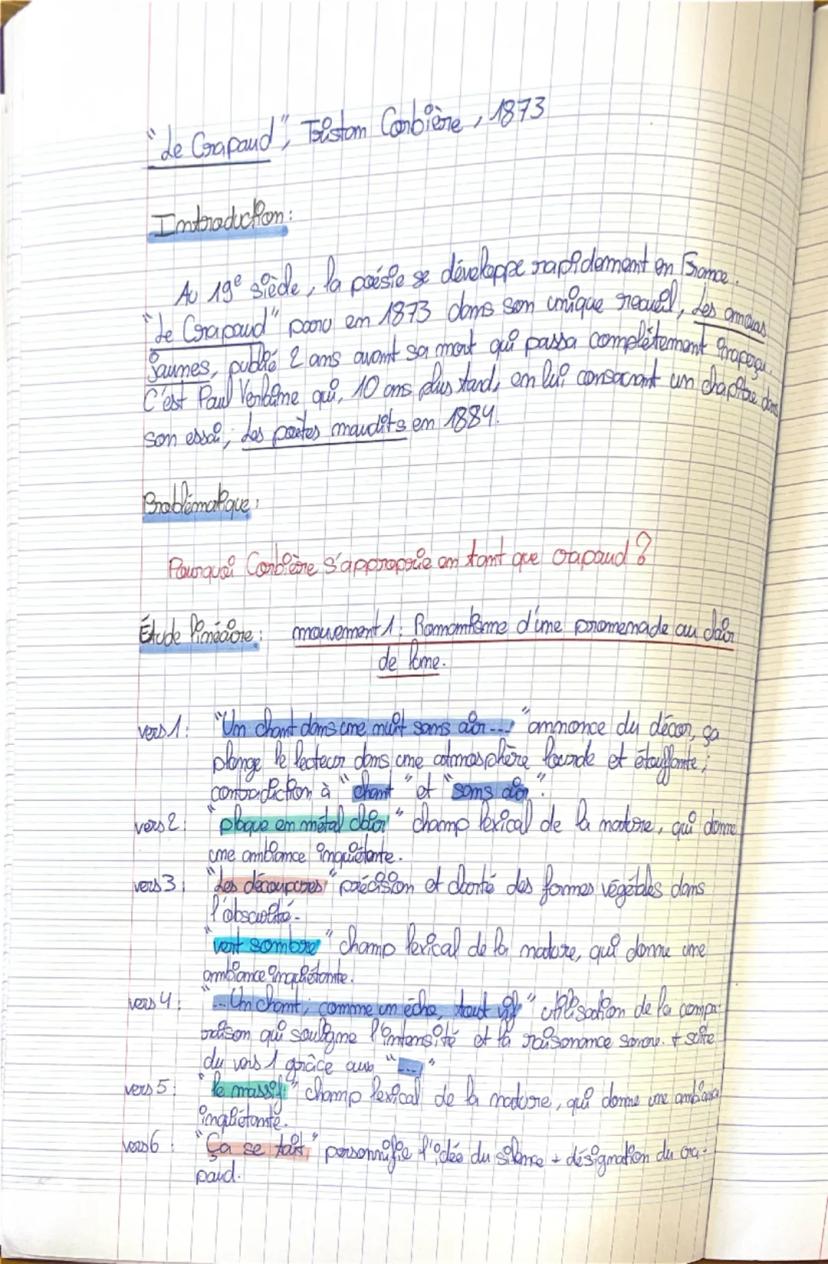 "Le Crapaud", Tristan Corbière, 1873
Introduction :
Au 19e siècle, la poésie se développe rapidement en France.
"Le Crapaud" paru en 1873 dans son unique recueil, Les amours
jaunes, publié 2 ans avant sa mort qui passa complètement inaperçu.
C'est Paul Verlaine qui, 10 ans plus tard, en lui consacrant un chapitre dans
son essai, Les poètes maudits en 1884.
Problématique :
Pourquoi Corbière s'approprie en tant que crapaud ?
Étude linéaire : mouvement 1 : Romantisme d'une promenade au clair
de lune.
vers 1 : "Un chant dans une nuit sans air..." annonce du décor, ça
plonge le lecteur dans une atmosphère lourde et étouffante ;
contradiction à "chant" et "sans air".
vers 2 : "plaque en métal clair" champ lexical de la nature, qui donne
une ambiance inquiétante.
vers 3 : "Les découpures" précision et clarté des formes végétales dans
l'obscurité.
"vert sombre" champ lexical de la nature, qui donne une
ambiance inquiétante.
vers 4 : "...Un chant ; comme un écho, tout vif" utilisation de la compa-
raison qui souligne l'intensité et la raisonance sonore. + suite
du vers 1 grâce aux "..."
vers 5 : "le massif" champ lexical de la nature, qui donne une ambiance
inquiétante.
vers 6 : "Ça se tait" personnifie l'idée du silence + désignation du cra-
paud.